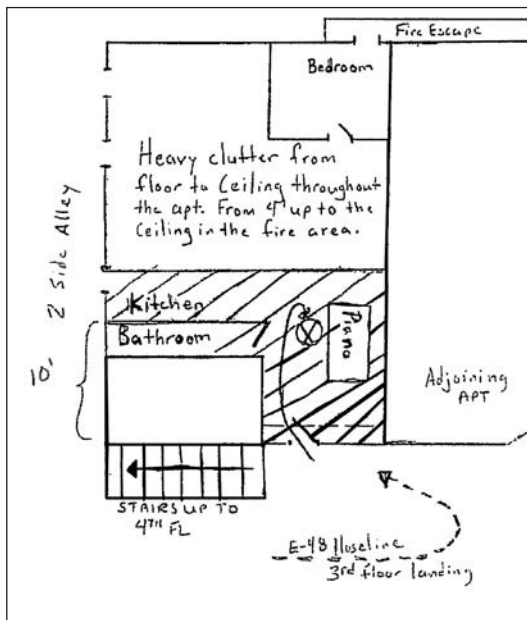 Fire Escape
Bedroom
Heavy clutter from
floor to Ceiling throughout
the apt. From 4' up to the
Ceiling in the fire area.
2 Side Alley
Kitchen
Bathroom
Piano
10'
Adjoining
APT
STAIRS UP TO
4TH FL
E-48 Hoseline
3rd floor landing